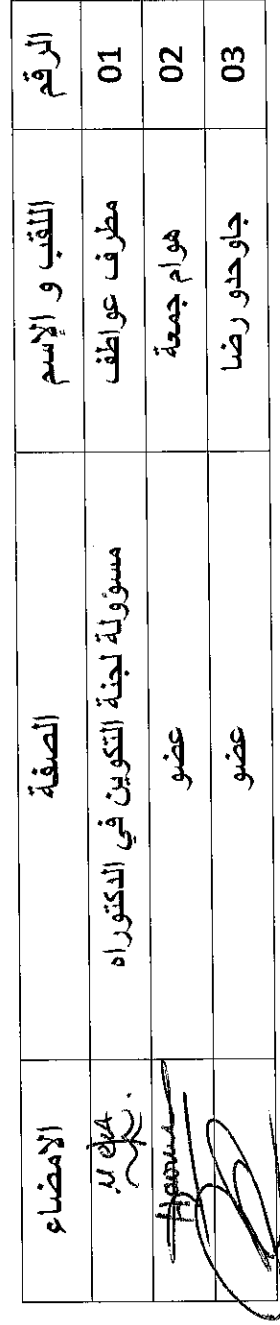 الرقم اللقب و الإسم الصفة الامضاء
01 مطرف عواطف مسؤولة لجنة التكوين في الدكتوراه
02 هوام جمعة عضو
03 جاوحدو رضا عضو